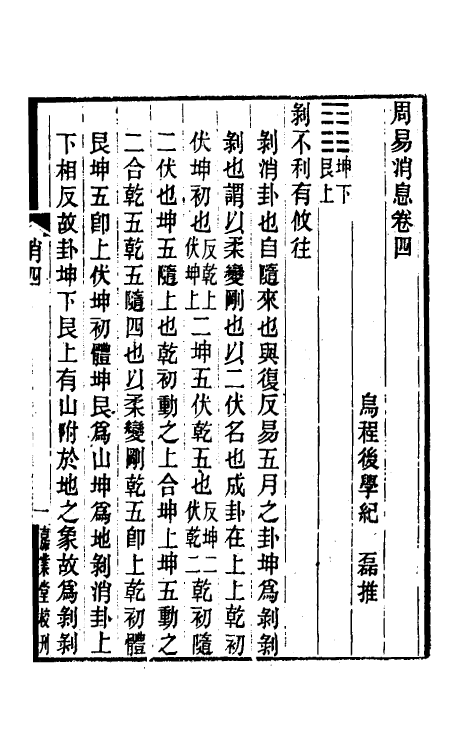 周易消息卷四
烏程後學紀　磊推
䷖坤下艮上
剝不利有攸往
剝消卦也自隨來也與復反易五月之卦坤爲剝剝
剝也謂以柔變剛也以二伏名也成卦在上上乾初
伏坤初也反乾上伏坤上二坤五伏乾五也反坤二伏乾二乾初隨
二伏也坤五隨上也乾初動之上合坤上坤五動之
二合乾五乾五隨四也以柔變剛乾五卽上乾初體
艮坤五卽上伏坤初體坤艮爲山坤爲地剝消卦上
下相反故卦坤下艮上有山附於地之象故爲剝剝
消四
一
嘉業堂校刊